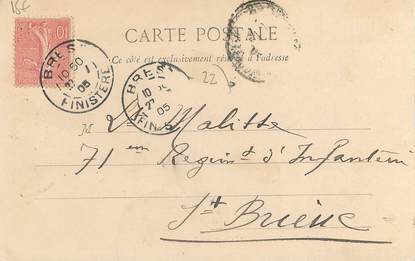 15€
CARTE POSTALE
Ce côté est exclusivement réservé à l'adresse
BREST
10.50
27 11
05
FINISTERE
BREST
10
27
05
FINIS
22
10
M Malitte
71em Regimt d'Infanterie
St Brieuc